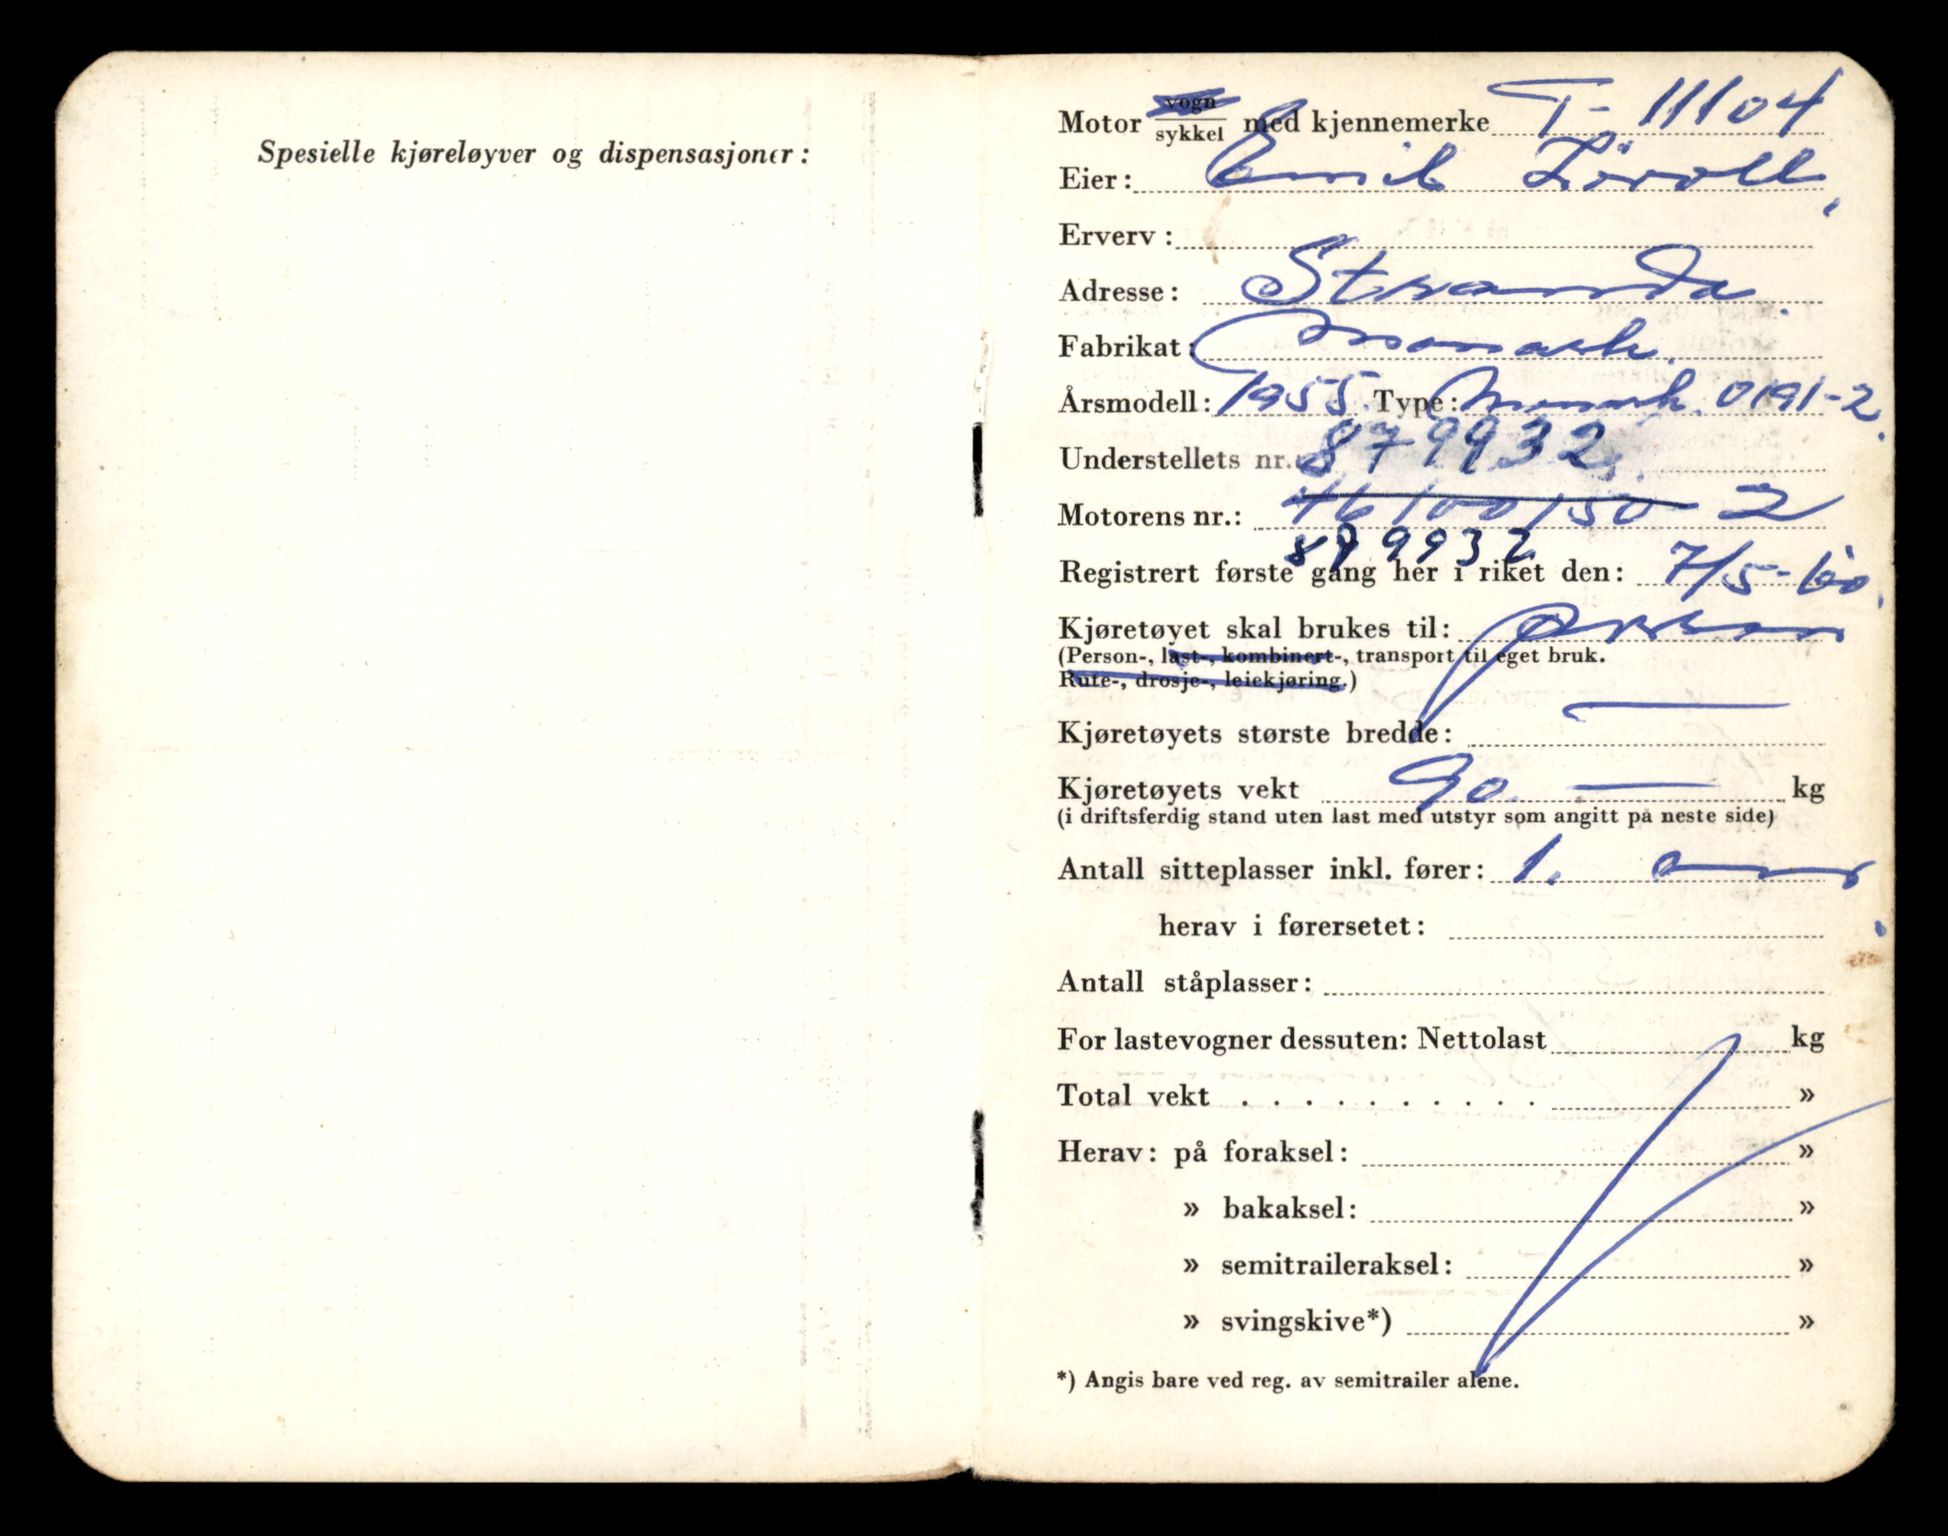 Spesielle kjøreløyver og dispensasjoner:
Motor vogn/sykkel med kjennemerke T- 11104
Eier: Emil Liavoll
Erverv:
Adresse: Stranda
Fabrikat: Monark.
Årsmodell: 1955. Type: Monark. 0191-2.
Understellets nr. 879932
Motorens nr.: 46100150 2
879932
Registrert første gang her i riket den: 7/5-60.
Kjøretøyet skal brukes til: person
(Person-, last-, kombinert-, transport til eget bruk.
Rute-, drosje-, leiekjøring.)
Kjøretøyets største bredde: —
Kjøretøyets vekt 90. — kg
(i driftsferdig stand uten last med utstyr som angitt på neste side)
Antall sitteplasser inkl. fører: 1.
herav i førersetet:
Antall ståplasser:
For lastevogner dessuten: Nettolast kg
Total vekt . . . . . . . . . . »
Herav: på foraksel: »
» bakaksel: »
» semitraileraksel: »
» svingskive*) »
*) Angis bare ved reg. av semitrailer alene.